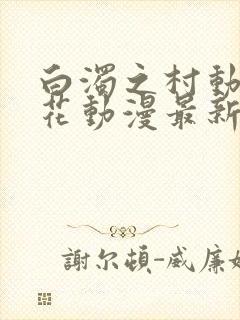 白濁之村動
花動漫最新
謝尔頓-威廉姆